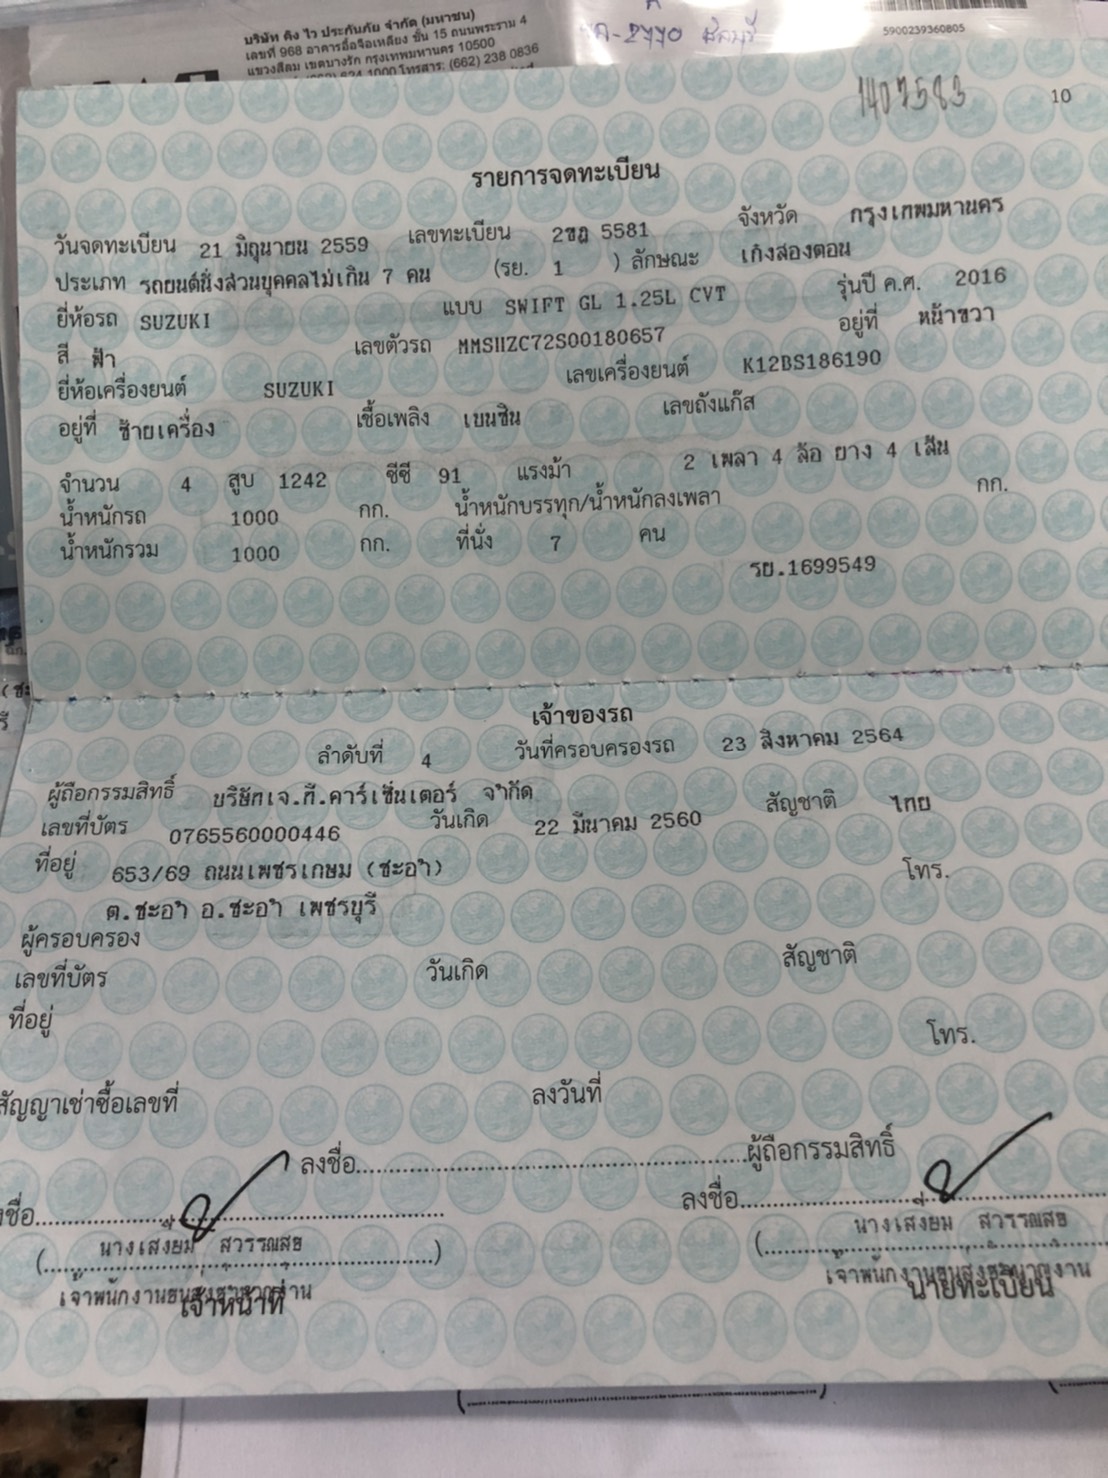 บริษัท คิง ไว ประกันภัย จำกัด (มหาชน)
เลขที่ 968 อาคารอื้อจือเหลียง ชั้น 15 ถนนพระราม 4
แขวงสีลม เขตบางรัก กรุงเทพมหานคร 10500
1000 โทรสาร: (662) 238 0836
5900239360805
1407583
10
รายการจดทะเบียน
วันจดทะเบียน 21 มิถุนายน 2559 เลขทะเบียน 2ขฎ 5581 จังหวัด กรุงเทพมหานคร
ประเภท รถยนต์นั่งส่วนบุคคลไม่เกิน 7 คน (รย. 1 ) ลักษณะ เก๋งสองตอน
ยี่ห้อรถ SUZUKI แบบ SWIFT GL 1.25L CVT รุ่นปี ค.ศ. 2016
สี ฟ้า เลขตัวรถ MMSHZC72S00180657 อยู่ที่ หน้าขวา
ยี่ห้อเครื่องยนต์ SUZUKI เลขเครื่องยนต์ K12BS186190
อยู่ที่ ซ้ายเครื่อง เชื้อเพลิง เบนซิน เลขถังแก๊ส
จำนวน 4 สูบ 1242 ซีซี 91 แรงม้า 2 เพลา 4 ล้อ ยาง 4 เส้น
น้ำหนักรถ 1000 กก. น้ำหนักบรรทุก/น้ำหนักลงเพลา กก.
น้ำหนักรวม 1000 กก. ที่นั่ง 7 คน
รย.1699549
เจ้าของรถ
ลำดับที่ 4 วันที่ครอบครองรถ 23 สิงหาคม 2564
ผู้ถือกรรมสิทธิ์ บริษัทเจ.ที.คาร์เซ็นเตอร์ จำกัด สัญชาติ ไทย
เลขที่บัตร 0765560000446 วันเกิด 22 มีนาคม 2560
ที่อยู่ 653/69 ถนนเพชรเกษม (ชะอำ) โทร.
ต.ชะอำ อ.ชะอำ เพชรบุรี
ผู้ครอบครอง
เลขที่บัตร วันเกิด สัญชาติ
ที่อยู่ โทร.
สัญญาเช่าซื้อเลขที่ ลงวันที่
ลงชื่อ ผู้ถือกรรมสิทธิ์
ลงชื่อ ลงชื่อ
(นางเสงี่ยม สวรรณสธ) (นางเสงี่ยม สวรรณสธ
เจ้าพนักงานขนส่งชำนาญงาน เจ้าพนักงานขนส่งชำนาญงาน
เจ้าหน้าที่ นายทะเบียน